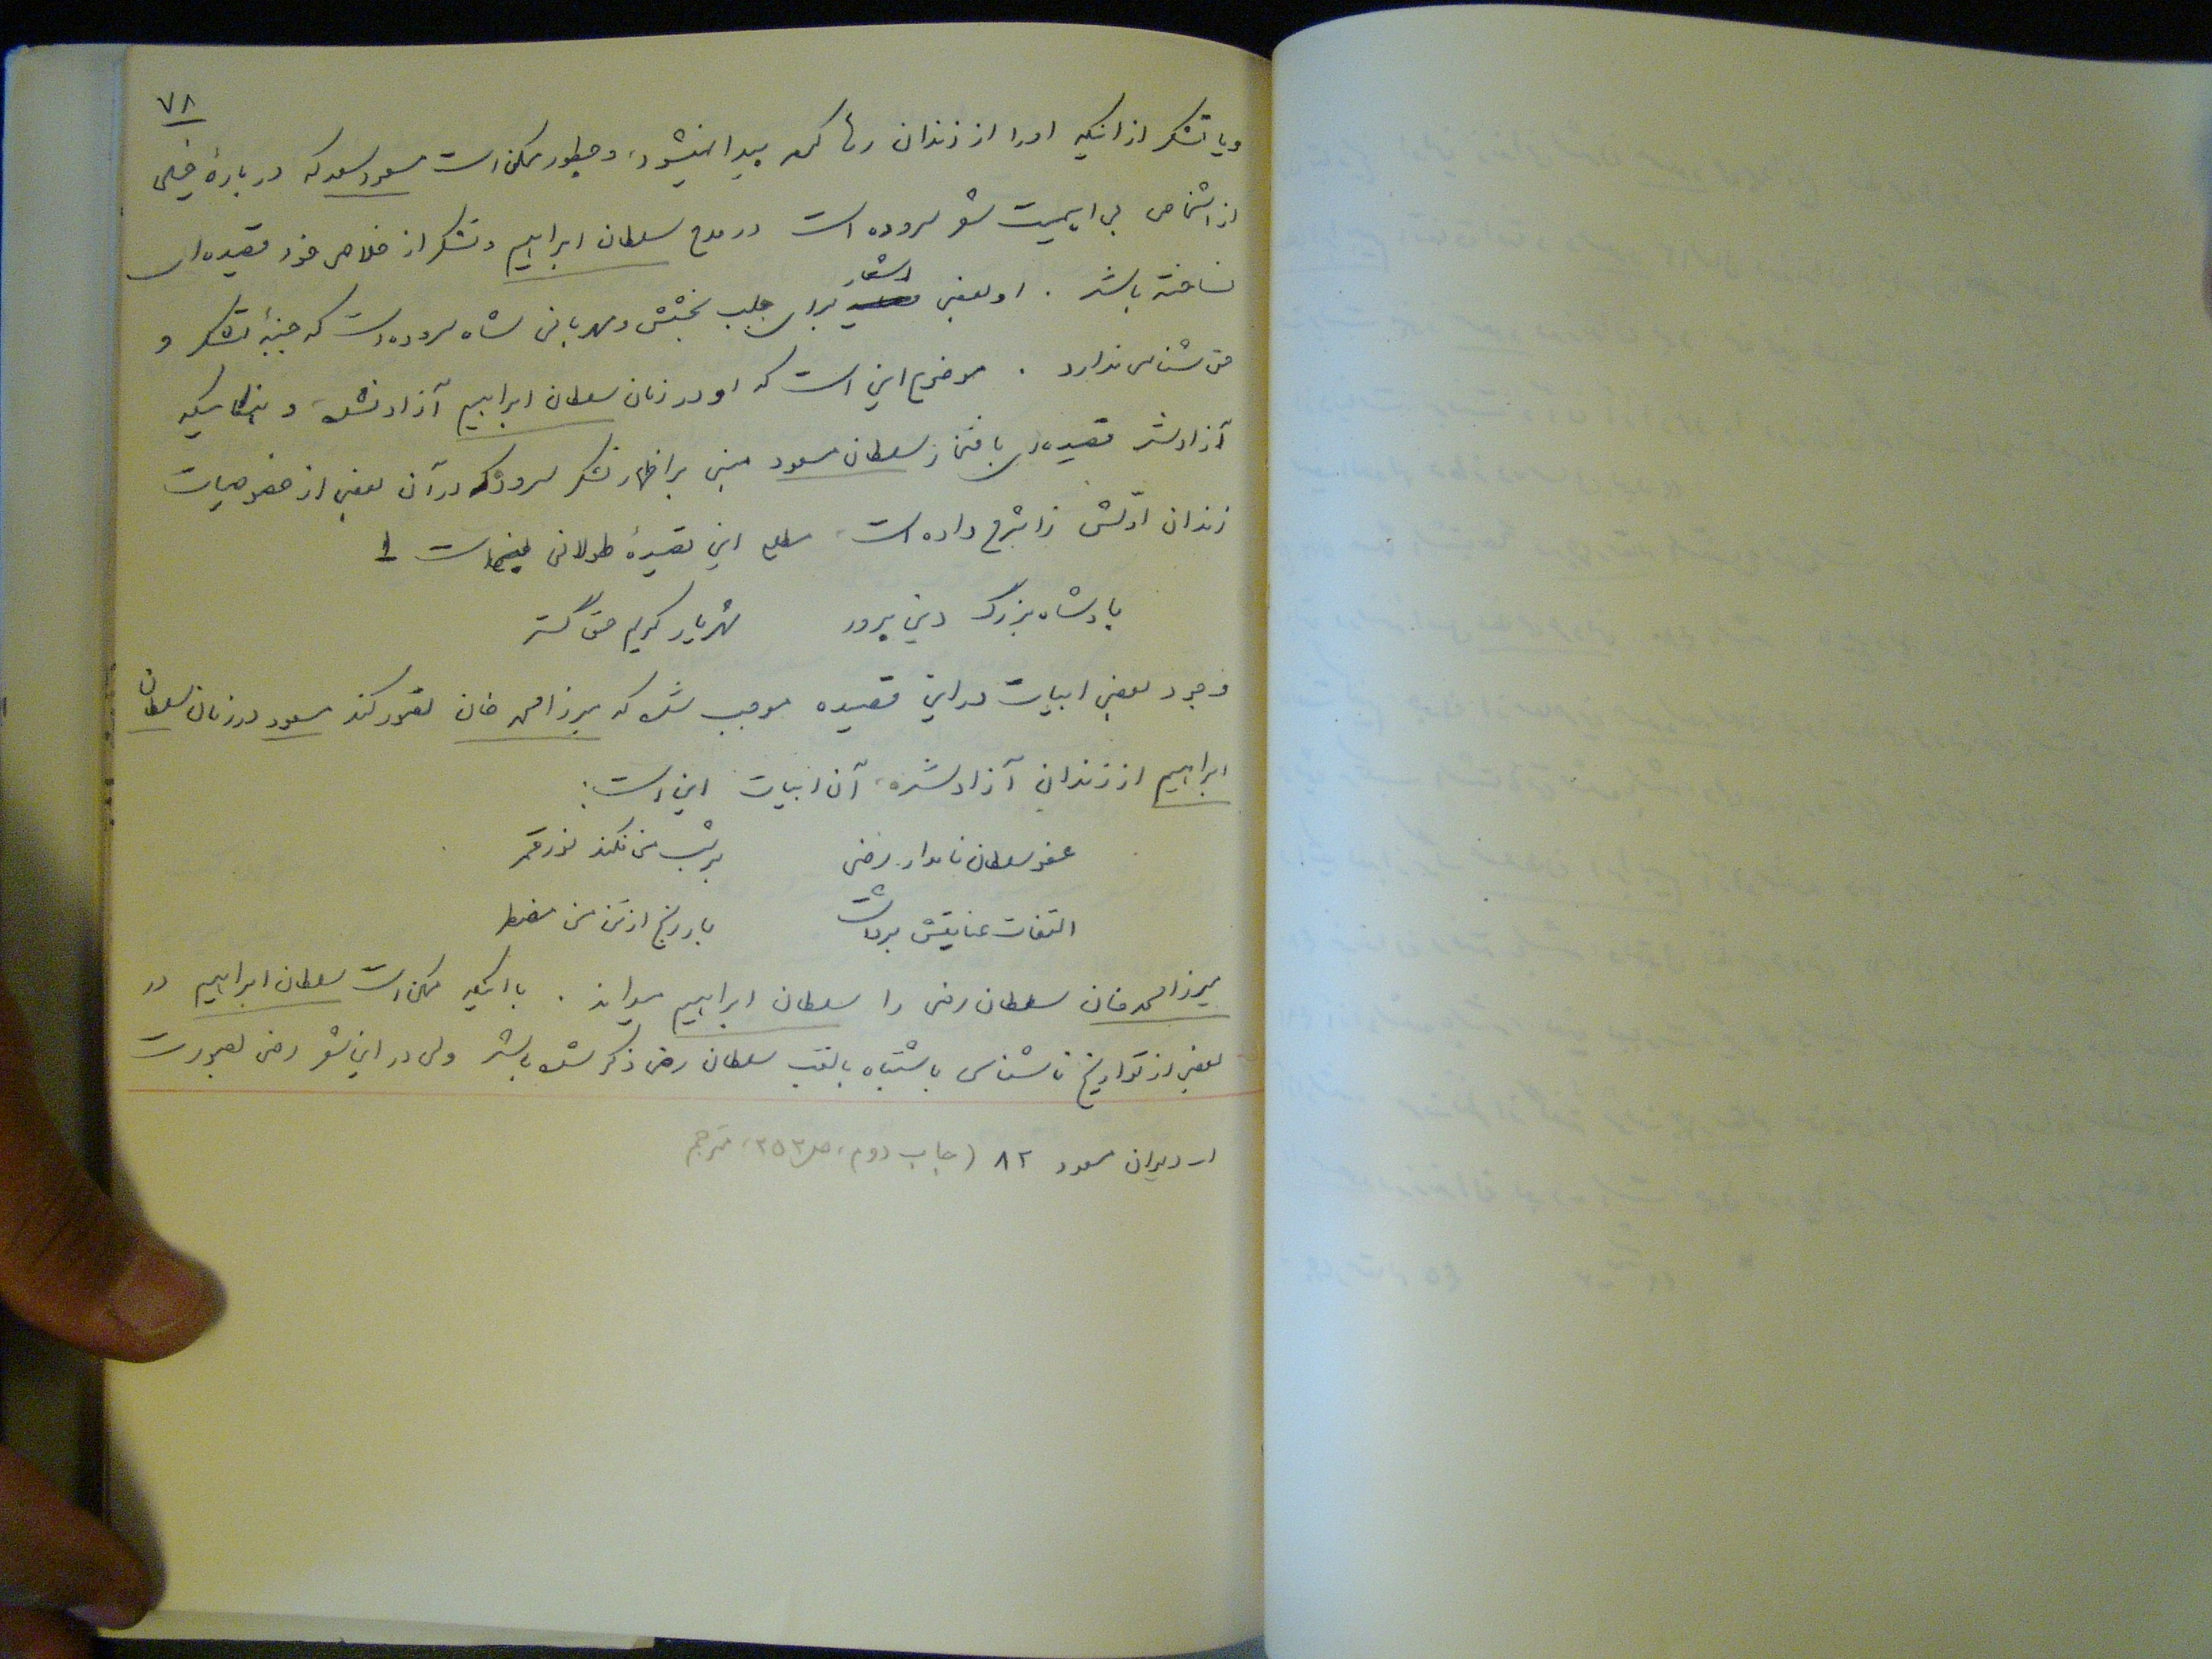 ۷۸
و یا تشکر از اینکه او را از زندان رها کرده پیدا نمیشود، و چطور ممکن است مسعود سعد که دربارهٔ خیلی
از اشخاص بی اهمیت شعر سروده است در مدح سلطان ابراهیم و تشکر از خلاص خود قصیده‌ای
نساخته باشد . او بعضی اشعار برای جلب بخشش و مهربانی شاه سروده است که جنبهٔ تشکر و
حق شناسی ندارد . موضوع این است که او در زمان سلطان ابراهیم آزاد نشده، و هنگامیکه
آزاد شد قصیده‌ای با سلطان مسعود مبنی بر اظهار تشکر سرود که در آن بعضی از خصوصیات
زندان اوّلش را شرح داده است، مطلع این قصیدهٔ طولانی اینست ۱
پادشاه بزرگ دین پرور شهریار کریم حق گستر
وجود بعضی ابیات در این قصیده موجب شده که میرزا محمد خان تصور کند مسعود در زمان سلطان
ابراهیم از زندان آزاد شده، آن ابیات این است:
عفو سلطان نامدار رضی بر شب من فکند نور قمر
التفات عنایتش برداشت بار رنج از تن من مضطر
میرزا محمد خان سلطان رضی را سلطان ابراهیم میداند . با اینکه ممکن است سلطان ابراهیم در
بعضی از تواریخ ناشناس باشتباه بالقب سلطان رضی ذکر شده باشد ولی در این شعر رضی بصورت
۱ـ دیوان مسعود ۸۲ (چاپ دوم، ص ۲۵۲، مترجم